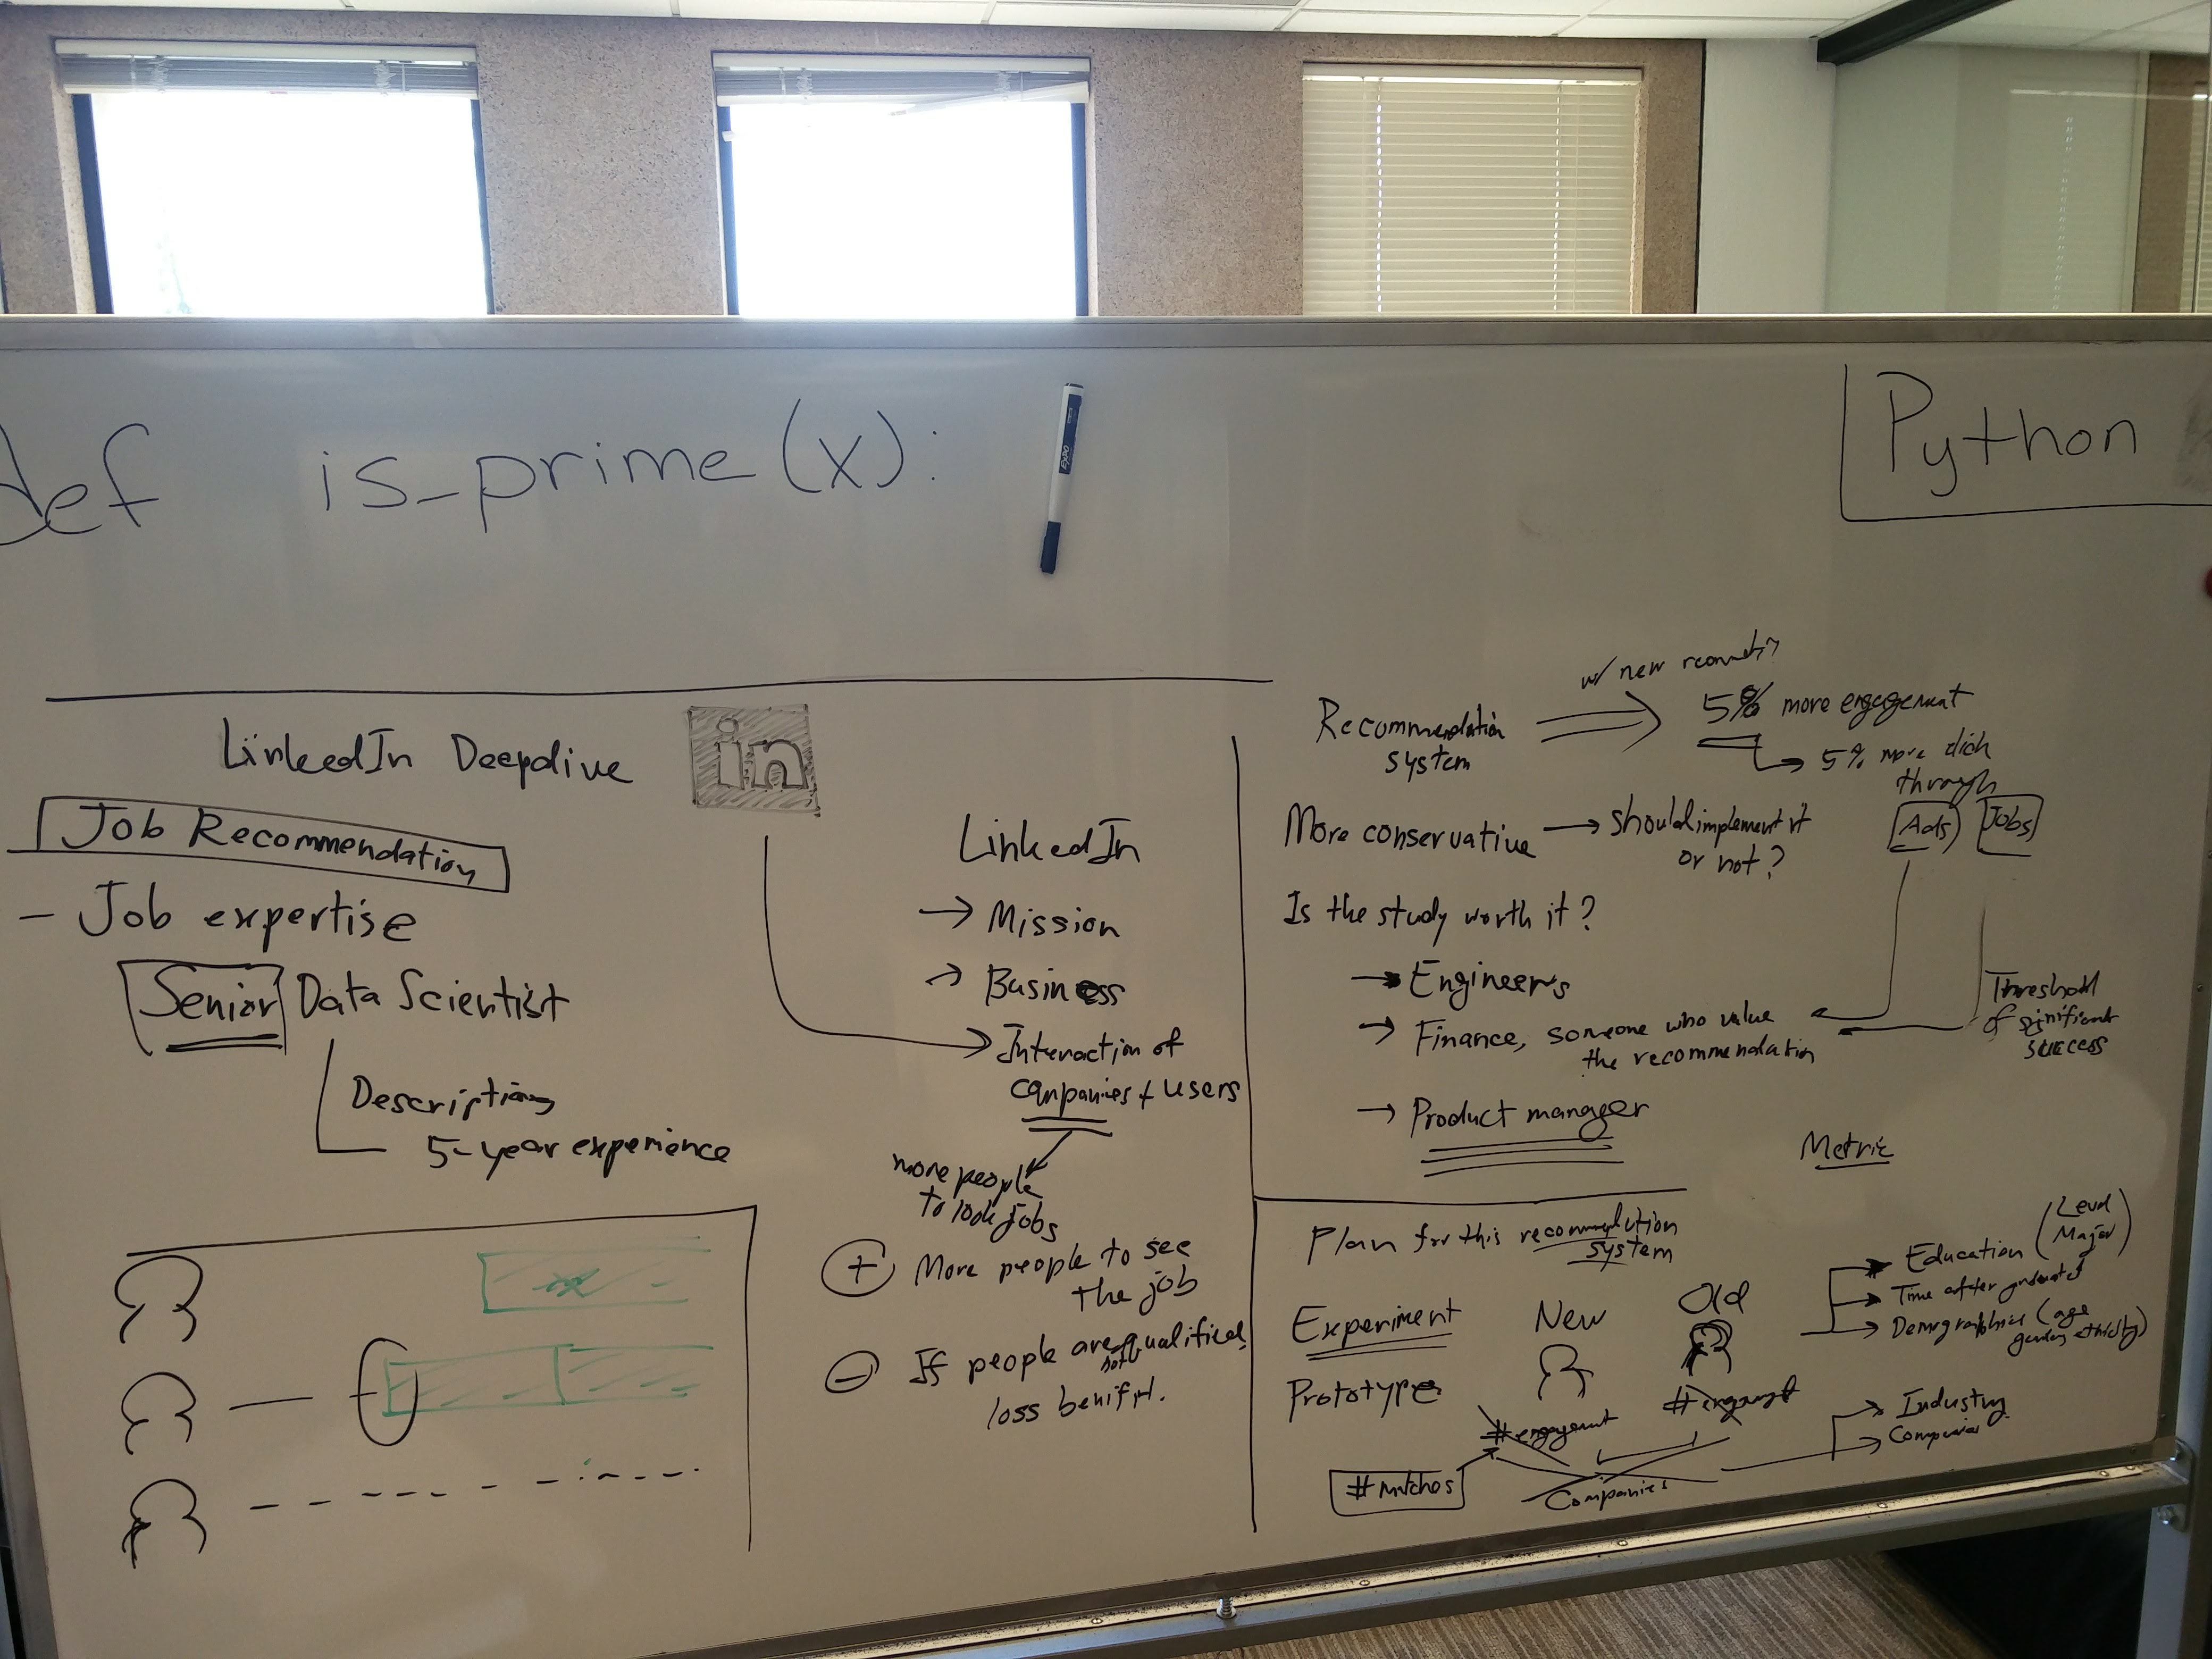 def is_prime(x):
Python
EXPO
LinkedIn Deepdive
in
Job Recommendation
- Job expertise
Senior Data Scientist
Description
5-year experience
LinkedIn
→ Mission
→ Business
→ Interaction of
companies + users
more people
to look jobs
+ More people to see
the job
- If people are not qualified,
loss benifit.
Recommendation
system
w/ new
5% more engagement
5% more click
through
Ads Jobs
More conservative → should implement it
or not?
Is the study worth it?
→ Engineers
→ Finance, someone who value
the recommendation
→ Product manager
Threshold
of significant
success
Metric
Plan for this recommendation
system
Experiment
Prototype
New
Old
#engagement
#engagement
#matches
Companies
Education (Level
Major)
Time after graduated
Demographics (age
gender, ethnicity)
Industry
Companies